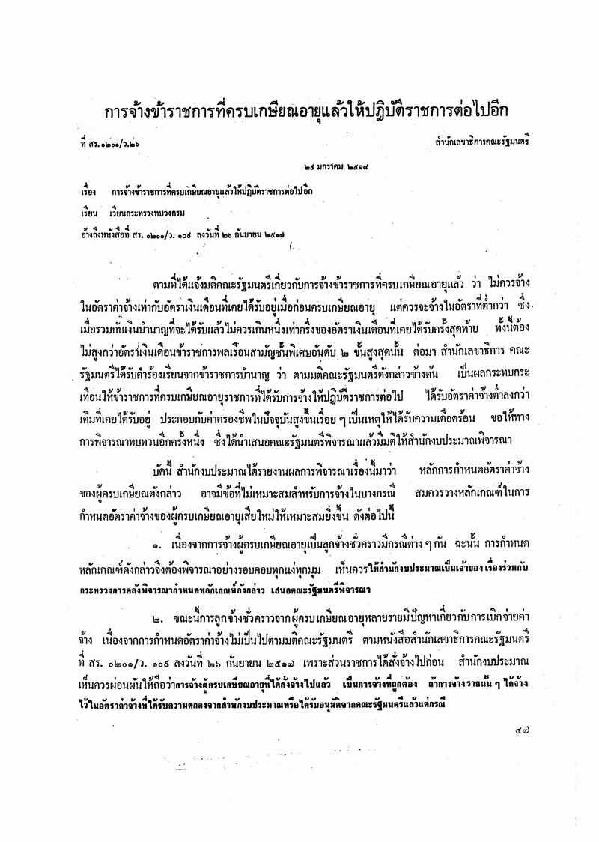 การจ้างข้าราชการที่ครบเกษียณอายุแล้วให้ปฏิบัติราชการต่อไปอีก
ที่ สร.๑๒๐๑/ว.๒๖ สำนักเลขาธิการคณะรัฐมนตรี
มกราคม ๒๕๑๘
เรื่อง การจ้างข้าราชการที่ครบเกษียณอายุแล้วให้ปฏิบัติราชการต่อไปอีก
เรียน เวียนกระทรวงทบวงกรม
อ้างถึงหนังสือที่ สร. ๐๒๐๑/ว. ๑๐๕ ลงวันที่ ๒๖ กันยายน ๒๕๑๗
ตามที่ได้แจ้งมติคณะรัฐมนตรีเกี่ยวกับการจ้างข้าราชการที่ครบเกษียณอายุแล้ว ว่า ไม่ควรจ้าง
ในอัตราค่าจ้างเท่ากับอัตราเงินเดือนที่เคยได้รับอยู่เมื่อก่อนครบเกษียณอายุ แต่ควรจะจ้างในอัตราที่ต่ำกว่า ซึ่ง
เมื่อรวมกับเงินบำนาญที่จะได้รับแล้วไม่ควรเกินหนึ่งเท่าครึ่งของอัตราเงินเดือนที่เคยได้รับครั้งสุดท้าย ทั้งนี้ต้อง
ไม่สูงกว่าอัตราเงินเดือนข้าราชการพลเรือนสามัญชั้นพิเศษอันดับ ๒ ขั้นสูงสุดนั้น ต่อมา สำนักเลขาธิการ คณะ
รัฐมนตรีได้รับคำร้องเรียนจากข้าราชการบำนาญ ว่า ตามมติคณะรัฐมนตรีดังกล่าวข้างต้น เป็นผลกระทบกระ
เทือนให้ข้าราชการที่ครบเกษียณอายุราชการที่ได้รับการจ้างให้ปฏิบัติราชการต่อไป ได้รับอัตราค่าจ้างต่ำลงกว่า
เดิมที่เคยได้รับอยู่ ประกอบกับค่าครองชีพในปัจจุบันสูงขึ้นเรื่อย ๆ เป็นเหตุให้ได้รับความเดือดร้อน ขอให้ทาง
การพิจารณาทบทวนอีกครั้งหนึ่ง ซึ่งได้นำเสนอคณะรัฐมนตรีพิจารณาแล้วมีมติให้สำนักงบประมาณพิจารณา
บัดนี้ สำนักงบประมาณได้รายงานผลการพิจารณาเรื่องนี้มาว่า หลักการกำหนดอัตราค่าจ้าง
ของผู้ครบเกษียณดังกล่าว อาจมีข้อที่ไม่เหมาะสมสำหรับการจ้างในบางกรณี สมควรวางหลักเกณฑ์ในการ
กำหนดอัตราค่าจ้างของผู้ครบเกษียณอายุเสียใหม่ให้เหมาะสมยิ่งขึ้น ดังต่อไปนี้
๑. เนื่องจากการจ้างผู้ครบเกษียณอายุเป็นลูกจ้างชั่วคราวมีกรณีต่าง ๆ กัน ฉะนั้น การกำหนด
หลักเกณฑ์ดังกล่าวจึงต้องพิจารณาอย่างรอบคอบทุกแง่ทุกมุม เห็นควรให้สำนักงบประมาณเป็นเจ้าของเรื่องร่วมกับ
กระทรวงการคลังพิจารณากำหนดหลักเกณฑ์ดังกล่าว เสนอคณะรัฐมนตรีพิจารณา
๒. ขณะนี้การลูกจ้างชั่วคราวจากผู้ครบเกษียณอายุหลายรายมีปัญหาเกี่ยวกับการเบิกจ่ายค่า
จ้าง เนื่องจากการกำหนดอัตราค่าจ้างไม่เป็นไปตามมติคณะรัฐมนตรี ตามหนังสือสำนักเลขาธิการคณะรัฐมนตรี
ที่ สร. ๐๒๐๑/ว. ๑๐๕ ลงวันที่ ๒๖ กันยายน ๒๕๑๗ เพราะส่วนราชการได้สั่งจ้างไปก่อน สำนักงบประมาณ
เห็นควรผ่อนผันให้ถือว่าการจ้างผู้ครบเกษียณอายุที่ได้สั่งจ้างไปแล้ว เป็นการจ้างที่ถูกต้อง ถ้าการจ้างรายนั้น ๆ ได้จ้าง
ไว้ในอัตราค่าจ้างที่ได้รับความตกลงจากสำนักงบประมาณหรือได้รับอนุมัติจากคณะรัฐมนตรีแล้วแต่กรณี